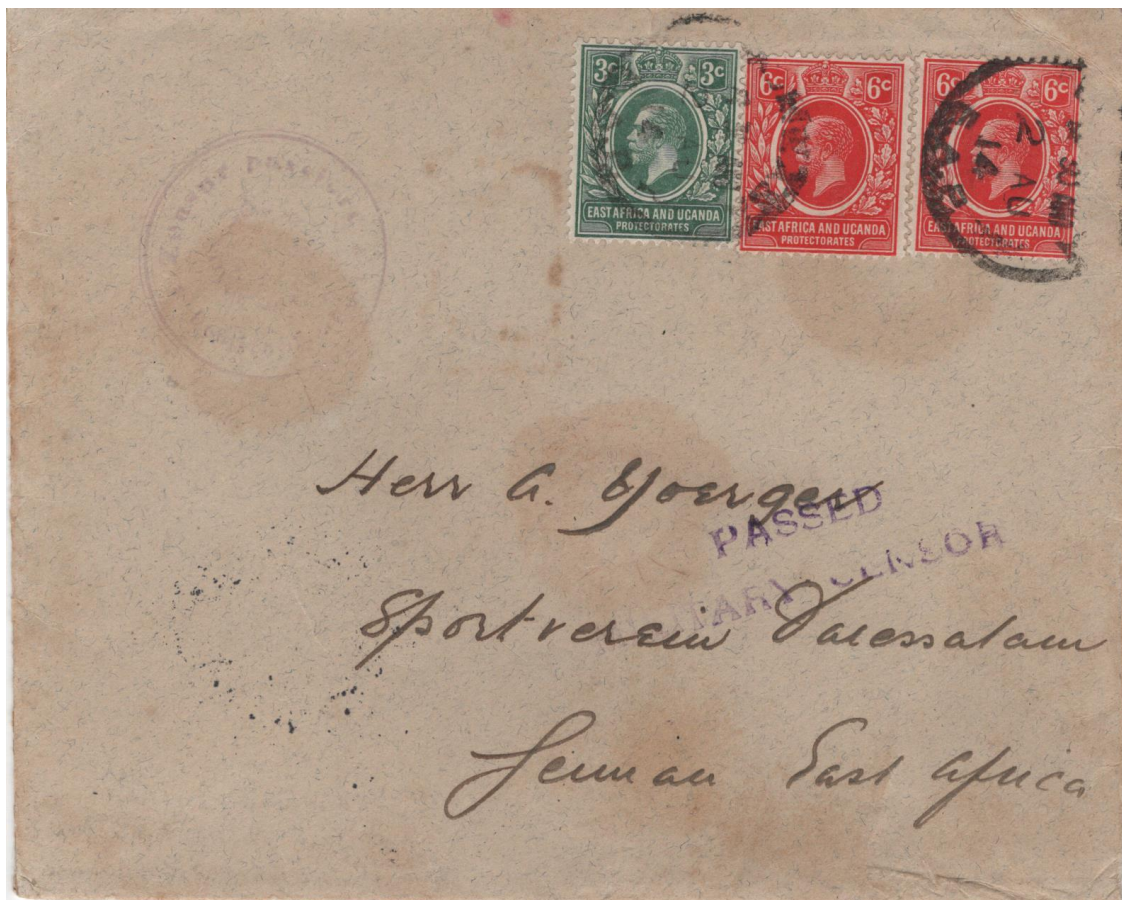 3c 3c
EAST AFRICA AND UGANDA
PROTECTORATES
6c 6c
EAST AFRICA AND UGANDA
PROTECTORATES
6c 6c
EAST AFRICA AND UGANDA
PROTECTORATES
2 AU
14
Herr A. Yoergen
PASSED
CENSOR
Sportverein Daressalam
German East Africa